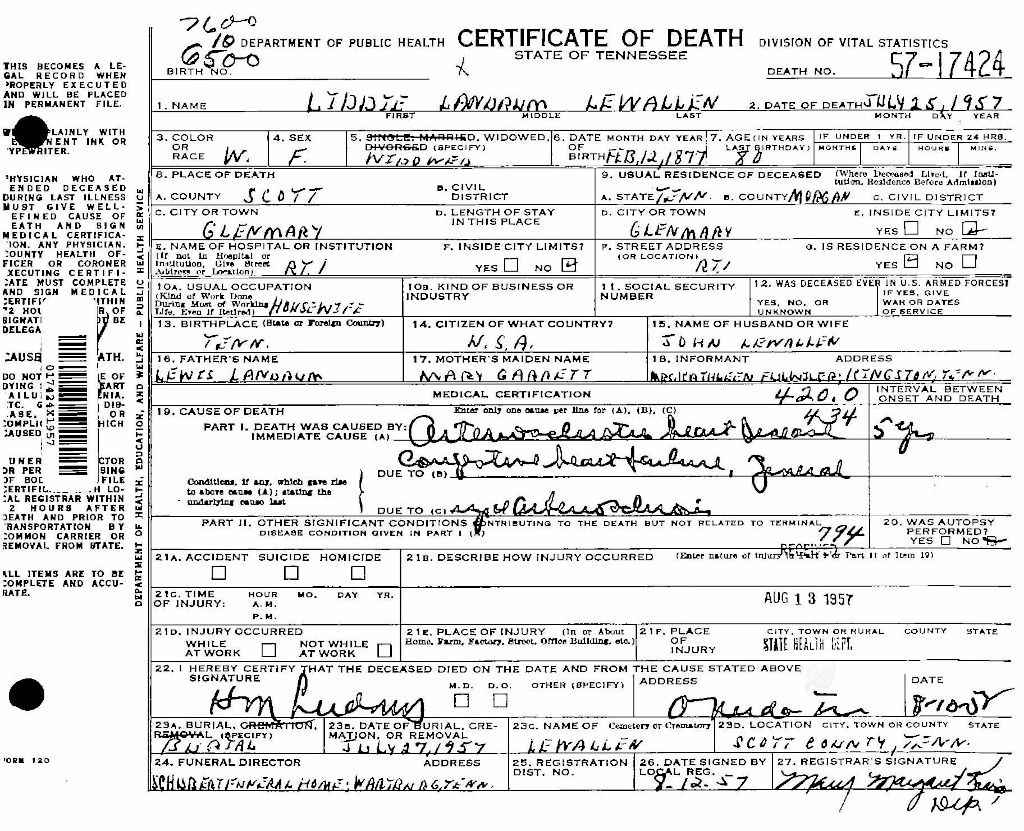 7600
10 DEPARTMENT OF PUBLIC HEALTH CERTIFICATE OF DEATH DIVISION OF VITAL STATISTICS
6500 STATE OF TENNESSEE
BIRTH NO. X DEATH NO. 57-17424
1. NAME LIDDIE LANDRUM LEWALLEN 2. DATE OF DEATH JULY 25, 1957
FIRST MIDDLE LAST MONTH DAY YEAR
3. COLOR OR RACE W. 4. SEX F. 5. SINGLE, MARRIED, WIDOWED, DIVORCED (SPECIFY) WIDOWED 6. DATE OF BIRTH MONTH DAY YEAR FEB, 12, 1877 7. AGE (IN YEARS LAST BIRTHDAY) 80 IF UNDER 1 YR. MONTHS DAYS IF UNDER 24 HRS. HOURS MINS.
8. PLACE OF DEATH 9. USUAL RESIDENCE OF DECEASED (Where Deceased Lived, If Institution, Residence Before Admission)
A. COUNTY SCOTT B. CIVIL DISTRICT A. STATE TENN. B. COUNTY MORGAN C. CIVIL DISTRICT
C. CITY OR TOWN GLENMARY D. LENGTH OF STAY IN THIS PLACE D. CITY OR TOWN GLENMARY E. INSIDE CITY LIMITS? YES NO
E. NAME OF HOSPITAL OR INSTITUTION (If not in Hospital or Institution, Give Street Address or Location) RT. 1 F. INSIDE CITY LIMITS? YES NO F. STREET ADDRESS (OR LOCATION) RT 1 G. IS RESIDENCE ON A FARM? YES NO
10A. USUAL OCCUPATION (Kind of Work Done During Most of Working Life, Even if Retired) HOUSEWIFE 10B. KIND OF BUSINESS OR INDUSTRY 11. SOCIAL SECURITY NUMBER 12. WAS DECEASED EVER IN U.S. ARMED FORCES? YES, NO, OR UNKNOWN IF YES, GIVE WAR OR DATES OF SERVICE
13. BIRTHPLACE (State or Foreign Country) TENN. 14. CITIZEN OF WHAT COUNTRY? U.S.A. 15. NAME OF HUSBAND OR WIFE JOHN LEWALLEN
16. FATHER'S NAME LEWIS LANDRUM 17. MOTHER'S MAIDEN NAME MARY GARRETT 18. INFORMANT ADDRESS KINGSTON, TENN.
MEDICAL CERTIFICATION 420.0 INTERVAL BETWEEN ONSET AND DEATH
19. CAUSE OF DEATH Enter only one cause per line for (A), (B), (C) 434
PART I. DEATH WAS CAUSED BY: IMMEDIATE CAUSE (A) Arteriosclerotic heart disease 5 yrs
Conditions, if any, which gave rise to above cause (A); stating the underlying cause last DUE TO (B) Congestive heart failure, General
DUE TO (C) Arteriosclerosis
PART II. OTHER SIGNIFICANT CONDITIONS CONTRIBUTING TO THE DEATH BUT NOT RELATED TO TERMINAL DISEASE CONDITION GIVEN IN PART I (A) 794 20. WAS AUTOPSY PERFORMED? YES NO
21A. ACCIDENT SUICIDE HOMICIDE 21B. DESCRIBE HOW INJURY OCCURRED (Enter nature of injury in Part I or Part II of Item 19)
RECEIVED
21C. TIME OF INJURY: HOUR A.M. P.M. MO. DAY YR. AUG 13 1957
21D. INJURY OCCURRED WHILE AT WORK NOT WHILE AT WORK 21E. PLACE OF INJURY (In or About Home, Farm, Factory, Street, Office Building, etc.) 21F. PLACE OF INJURY CITY, TOWN OR RURAL COUNTY STATE
STATE HEALTH DEPT.
22. I HEREBY CERTIFY THAT THE DECEASED DIED ON THE DATE AND FROM THE CAUSE STATED ABOVE
SIGNATURE M.D. D.O. OTHER (SPECIFY) ADDRESS Oneida DATE
23A. BURIAL, CREMATION, REMOVAL (SPECIFY) BURIAL 23B. DATE OF BURIAL, CREMATION, OR REMOVAL JULY 27, 1957 23C. NAME OF Cemetery or Crematory LEWALLEN 23D. LOCATION CITY, TOWN OR COUNTY STATE SCOTT COUNTY, TENN.
24. FUNERAL DIRECTOR ADDRESS SCHUBERT FUNERAL HOME: WARTBURG, TENN. 25. REGISTRATION DIST. NO. 26. DATE SIGNED BY LOCAL REG. 8-12-57 27. REGISTRAR'S SIGNATURE Mary Margaret
Dep.
THIS BECOMES A LE-
GAL RECORD WHEN
PROPERLY EXECUTED
AND WILL BE PLACED
IN PERMANENT FILE.
PLAINLY WITH
INK OR
TYPEWRITER.
PHYSICIAN WHO AT-
TENDED DECEASED
DURING LAST ILLNESS
MUST GIVE WELL-
DEFINED CAUSE OF
DEATH AND SIGN
MEDICAL CERTIFICA-
TION. ANY PHYSICIAN,
COUNTY HEALTH OF-
FICER OR CORONER
EXECUTING CERTIFI-
CATE MUST COMPLETE
AND SIGN MEDICAL
017424X1957
REGISTRAR WITHIN
HOURS AFTER
DEATH AND PRIOR TO
TRANSPORTATION BY
COMMON CARRIER OR
REMOVAL FROM STATE.
ALL ITEMS ARE TO BE
COMPLETE AND ACCU-
RATE.
DEPARTMENT OF HEALTH, EDUCATION, AND WELFARE - PUBLIC HEALTH SERVICE
FORM 120